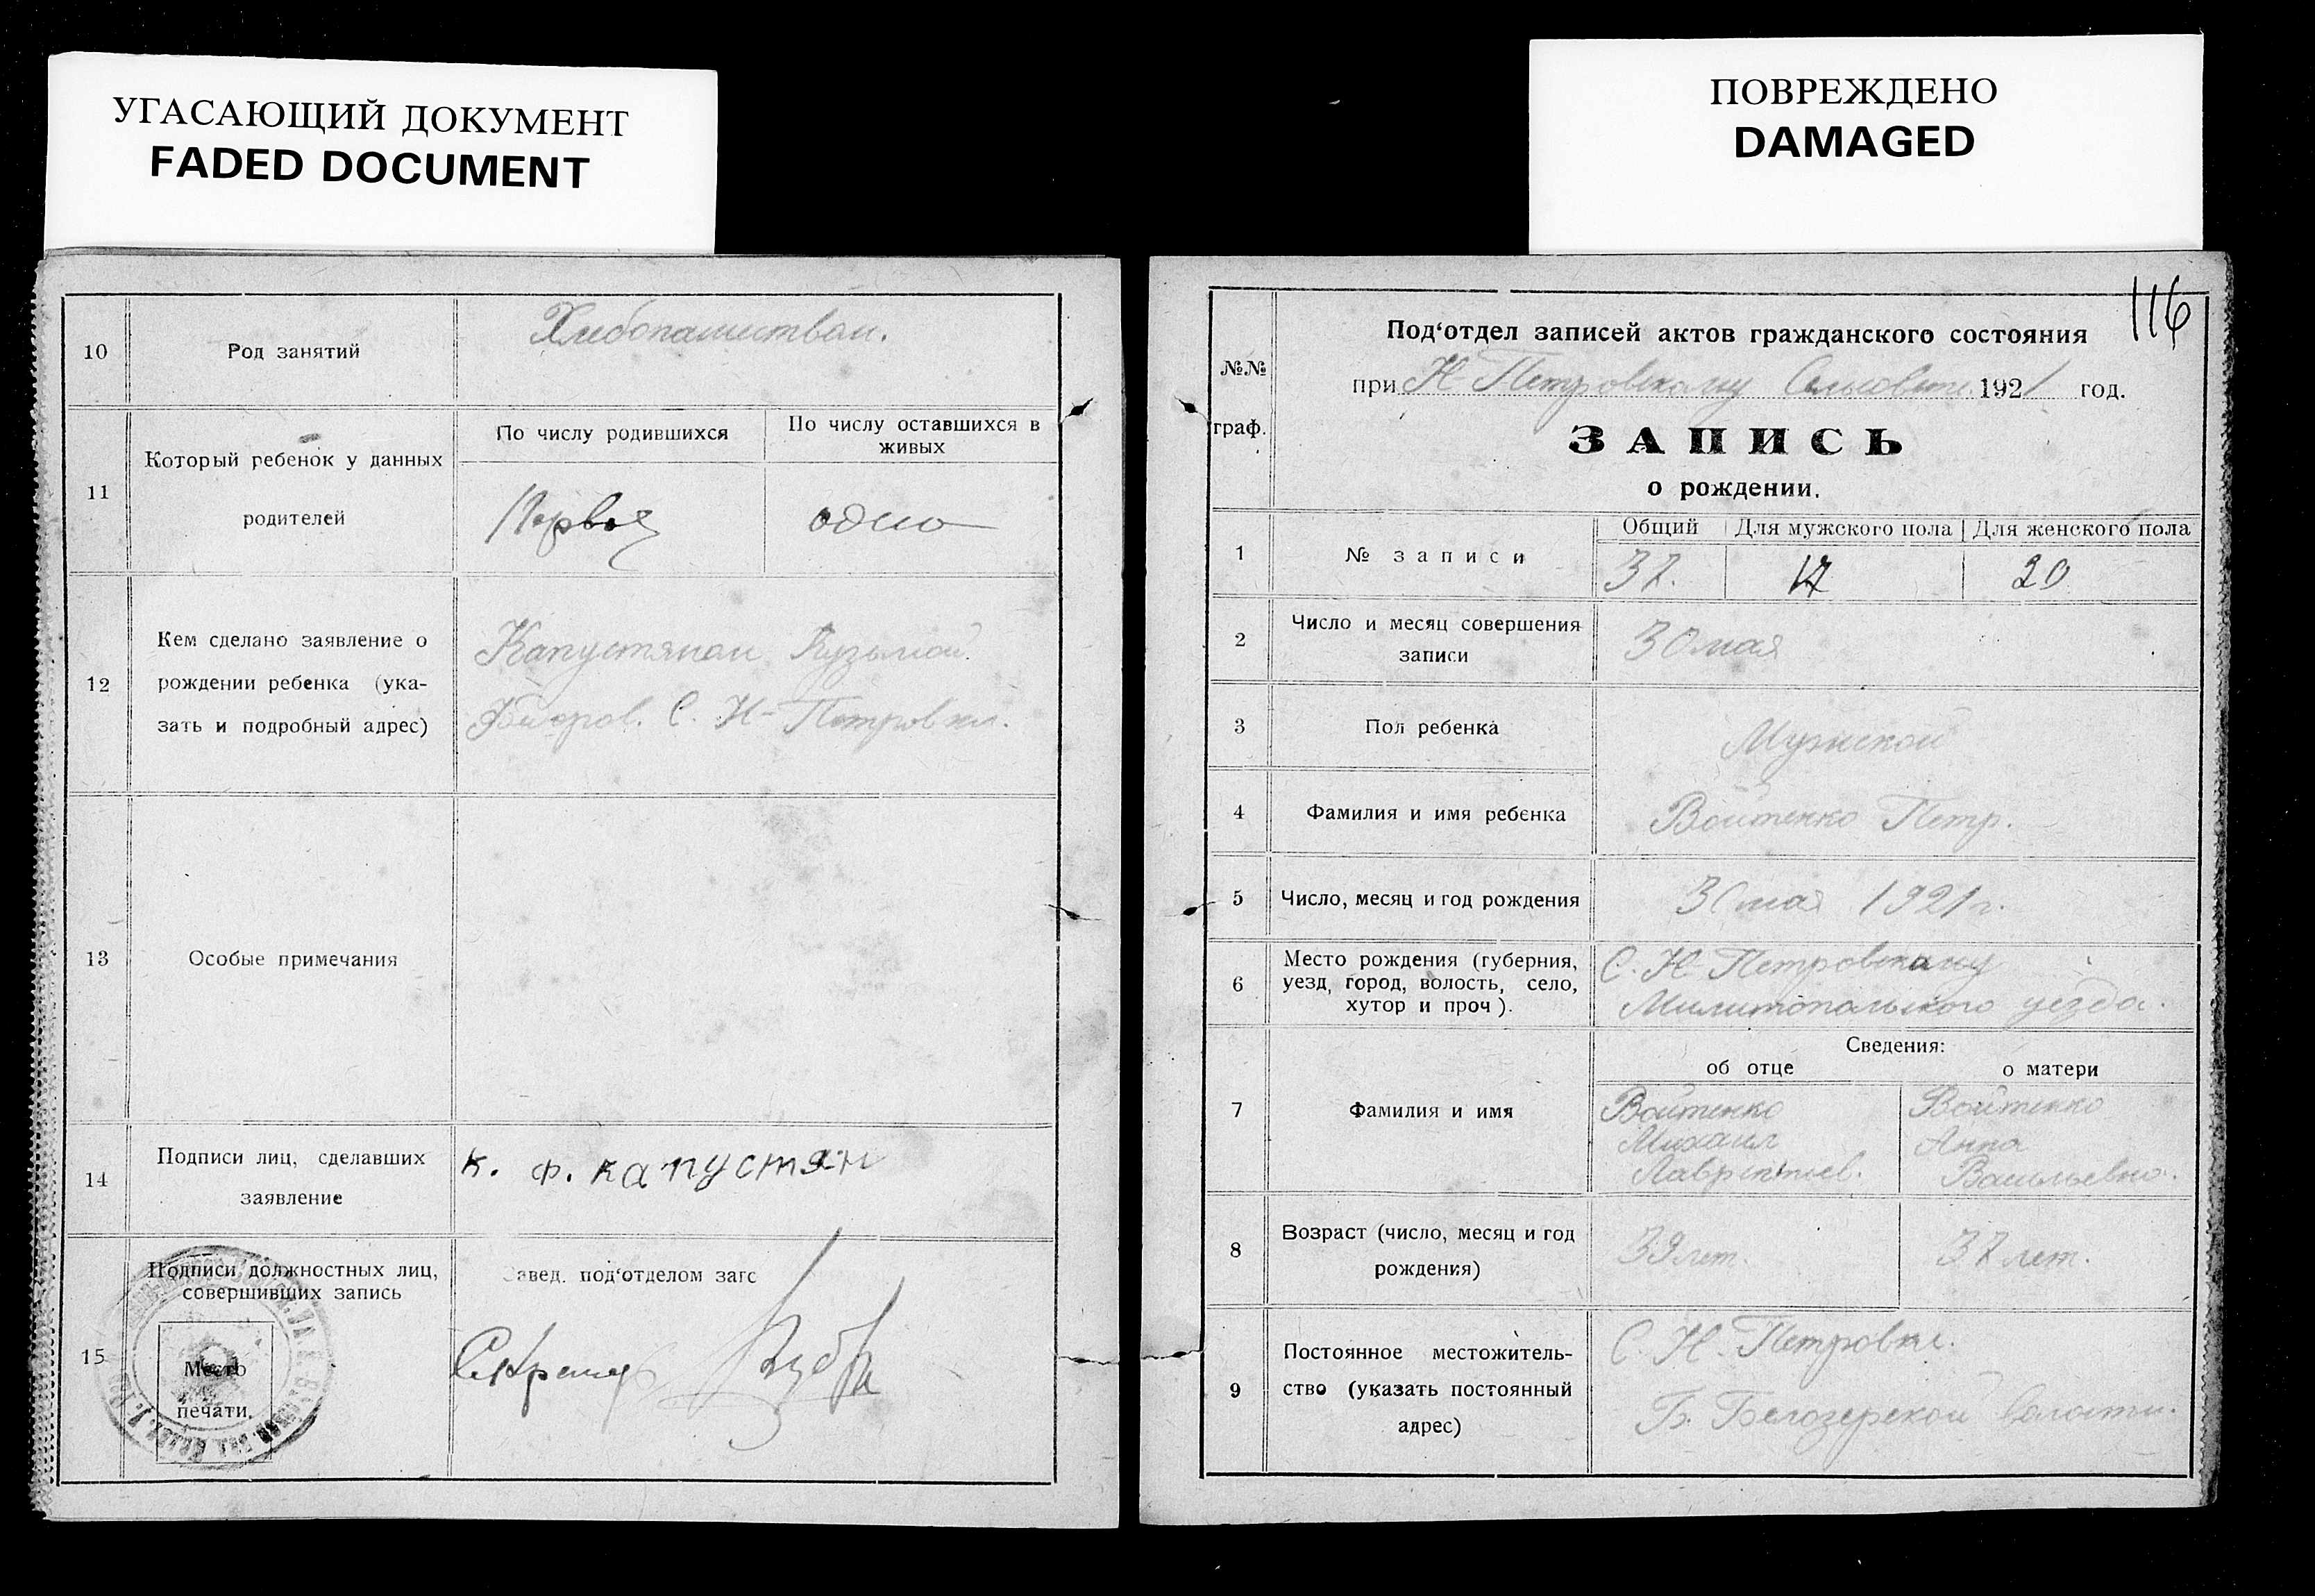 УГАСАЮЩИЙ ДОКУМЕНТ
FADED DOCUMENT
ПОВРЕЖДЕНО
DAMAGED
10
Род занятий
Хлебопашество
11
Который ребенок у данных
родителей
По числу родившихся
По числу оставшихся в
живых
одно
12
Кем сделано заявление о
рождении ребенка (ука-
зать и подробный адрес)
Капустяном Кузьмой
Федоров. С. Н-Петровки.
13
Особые примечания
14
Подписи лиц, сделавших
заявление
к. ф. капустян
15
Подписи должностных лиц,
совершивших запись
Место
печати.
Завед. под‘отделом загс
Секретарь
116
№№
граф.
Под‘отдел записей актов гражданского состояния
при Н Петровскому 1921 год.
ЗАПИСЬ
о рождении.
1
№ записи
Общий
Для мужского пола
Для женского пола
37.
17
20
2
Число и месяц совершения
записи
30 мая
3
Пол ребенка
Мужской
4
Фамилия и имя ребенка
Войтенко Петр.
5
Число, месяц и год рождения
30 мая 1921 г.
6
Место рождения (губерния,
уезд, город, волость, село,
хутор и проч).
С. Н Петровскому
Милитопольского уезда.
7
Фамилия и имя
Сведения:
об отце
о матери
Войтенко
Михаил
Лаврентьев.
Войтенко
Анна
Васильевна.
8
Возраст (число, месяц и год
рождения)
39 лет.
37 лет.
9
Постоянное местожитель-
ство (указать постоянный
адрес)
С. Н. Петровки.
Б. Белозерской волости.